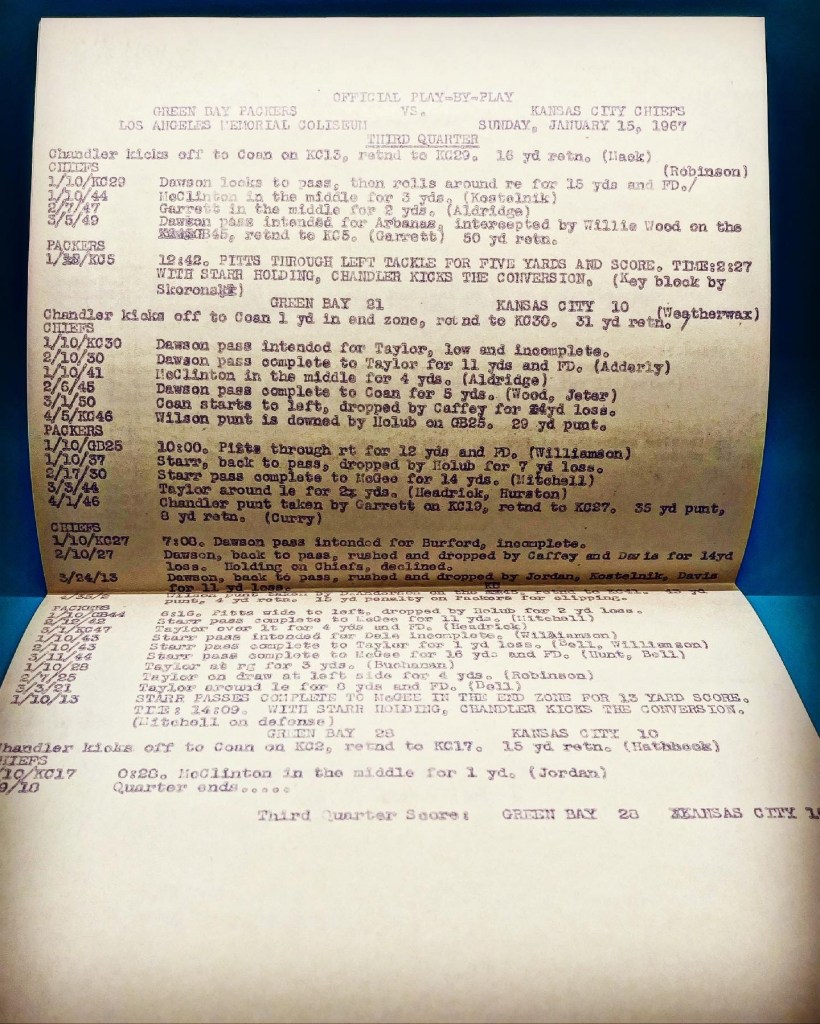 OFFICIAL PLAY-BY-PLAY
GREEN BAY PACKERS VS. KANSAS CITY CHIEFS
LOS ANGELES MEMORIAL COLISEUM SUNDAY, JANUARY 15, 1967
THIRD QUARTER
Chandler kicks off to Coan on KC13, retnd to KC29. 16 yd retn. (Mack)
CHIEFS (Robinson)
1/10/KC29 Dawson looks to pass, then rolls around re for 15 yds and FD./
1/10/44 McClinton in the middle for 3 yds. (Kostelnik)
2/7/47 Garrett in the middle for 2 yds. (Aldridge)
3/5/49 Dawson pass intended for Arbanas, intercepted by Willie Wood on the
GB45, retnd to KC5. (Garrett) 50 yd retn.
PACKERS
1/ /KC5 12:42. PITTS THROUGH LEFT TACKLE FOR FIVE YARDS AND SCORE. TIME:2:27
WITH STARR HOLDING, CHANDLER KICKS THE CONVERSION. (Key block by
Skoronski)
GREEN BAY 21 KANSAS CITY 10
Chandler kicks off to Coan 1 yd in end zone, retnd to KC30. 31 yd retn. / (Weatherwax)
CHIEFS
1/10/KC30 Dawson pass intended for Taylor, low and incomplete.
2/10/30 Dawson pass complete to Taylor for 11 yds and FD. (Adderly)
1/10/41 McClinton in the middle for 4 yds. (Aldridge)
2/6/45 Dawson pass complete to Coan for 5 yds. (Wood, Jeter)
3/1/50 Coan starts to left, dropped by Caffey for 4yd loss.
4/5/KC46 Wilson punt is downed by Holub on GB25. 29 yd punt.
PACKERS
1/10/GB25 10:00. Pitts through rt for 12 yds and FD. (Williamson)
1/10/37 Starr, back to pass, dropped by Holub for 7 yd loss.
2/17/30 Starr pass complete to McGee for 14 yds. (Mitchell)
3/3/44 Taylor around le for 2 yds. (Headrick, Hurston)
4/1/46 Chandler punt taken by Garrett on KC19, retnd to KC27. 35 yd punt,
8 yd retn. (Curry)
CHIEFS
1/10/KC27 7:08. Dawson pass intended for Burford, incomplete.
2/10/27 Dawson, back to pass, rushed and dropped by Caffey and Davis for 14yd
loss. Holding on Chiefs, declined.
3/24/13 Dawson, back to pass, rushed and dropped by Jordan, Kostelnik, Davis
for 11 yd loss. KC
4/35/2 Wilson punt taken by D.Anderson on the retnd to
punt, 4 yd retn. 15 yd penalty on Packers for clipping.
PACKERS
1/10/GB44 6:16. Pitts wide to left, dropped by Holub for 2 yd loss.
2/12/42 Starr pass complete to McGee for 11 yds. (Mitchell)
3/1/KC47 Taylor over lt for 4 yds and FD. (Headrick)
1/10/43 Starr pass intended for Dale incomplete. (Williamson)
2/10/43 Starr pass complete to Taylor for 1 yd loss. (Bell, Williamson)
3/11/44 Starr pass complete to McGee for 16 yds and FD. (Hunt, Bell)
1/10/28 Taylor at rg for 3 yds. (Buchanan)
2/7/25 Taylor on draw at left side for 4 yds. (Robinson)
3/3/21 Taylor around le for 8 yds and FD. (Bell)
1/10/13 STARR PASSES COMPLETE TO McGEE IN THE END ZONE FOR 13 YARD SCORE.
TIME: 14:09. WITH STARR HOLDING, CHANDLER KICKS THE CONVERSION.
(Mitchell on defense)
GREEN BAY 28 KANSAS CITY 10
Chandler kicks off to Coan on KC2, retnd to KC17. 15 yd retn. (Hathbock)
HIEFS
/10/KC17 0:28. McClinton in the middle for 1 yd. (Jordan)
9/18 Quarter ends.....
Third Quarter Score: GREEN BAY 28 KANSAS CITY 1